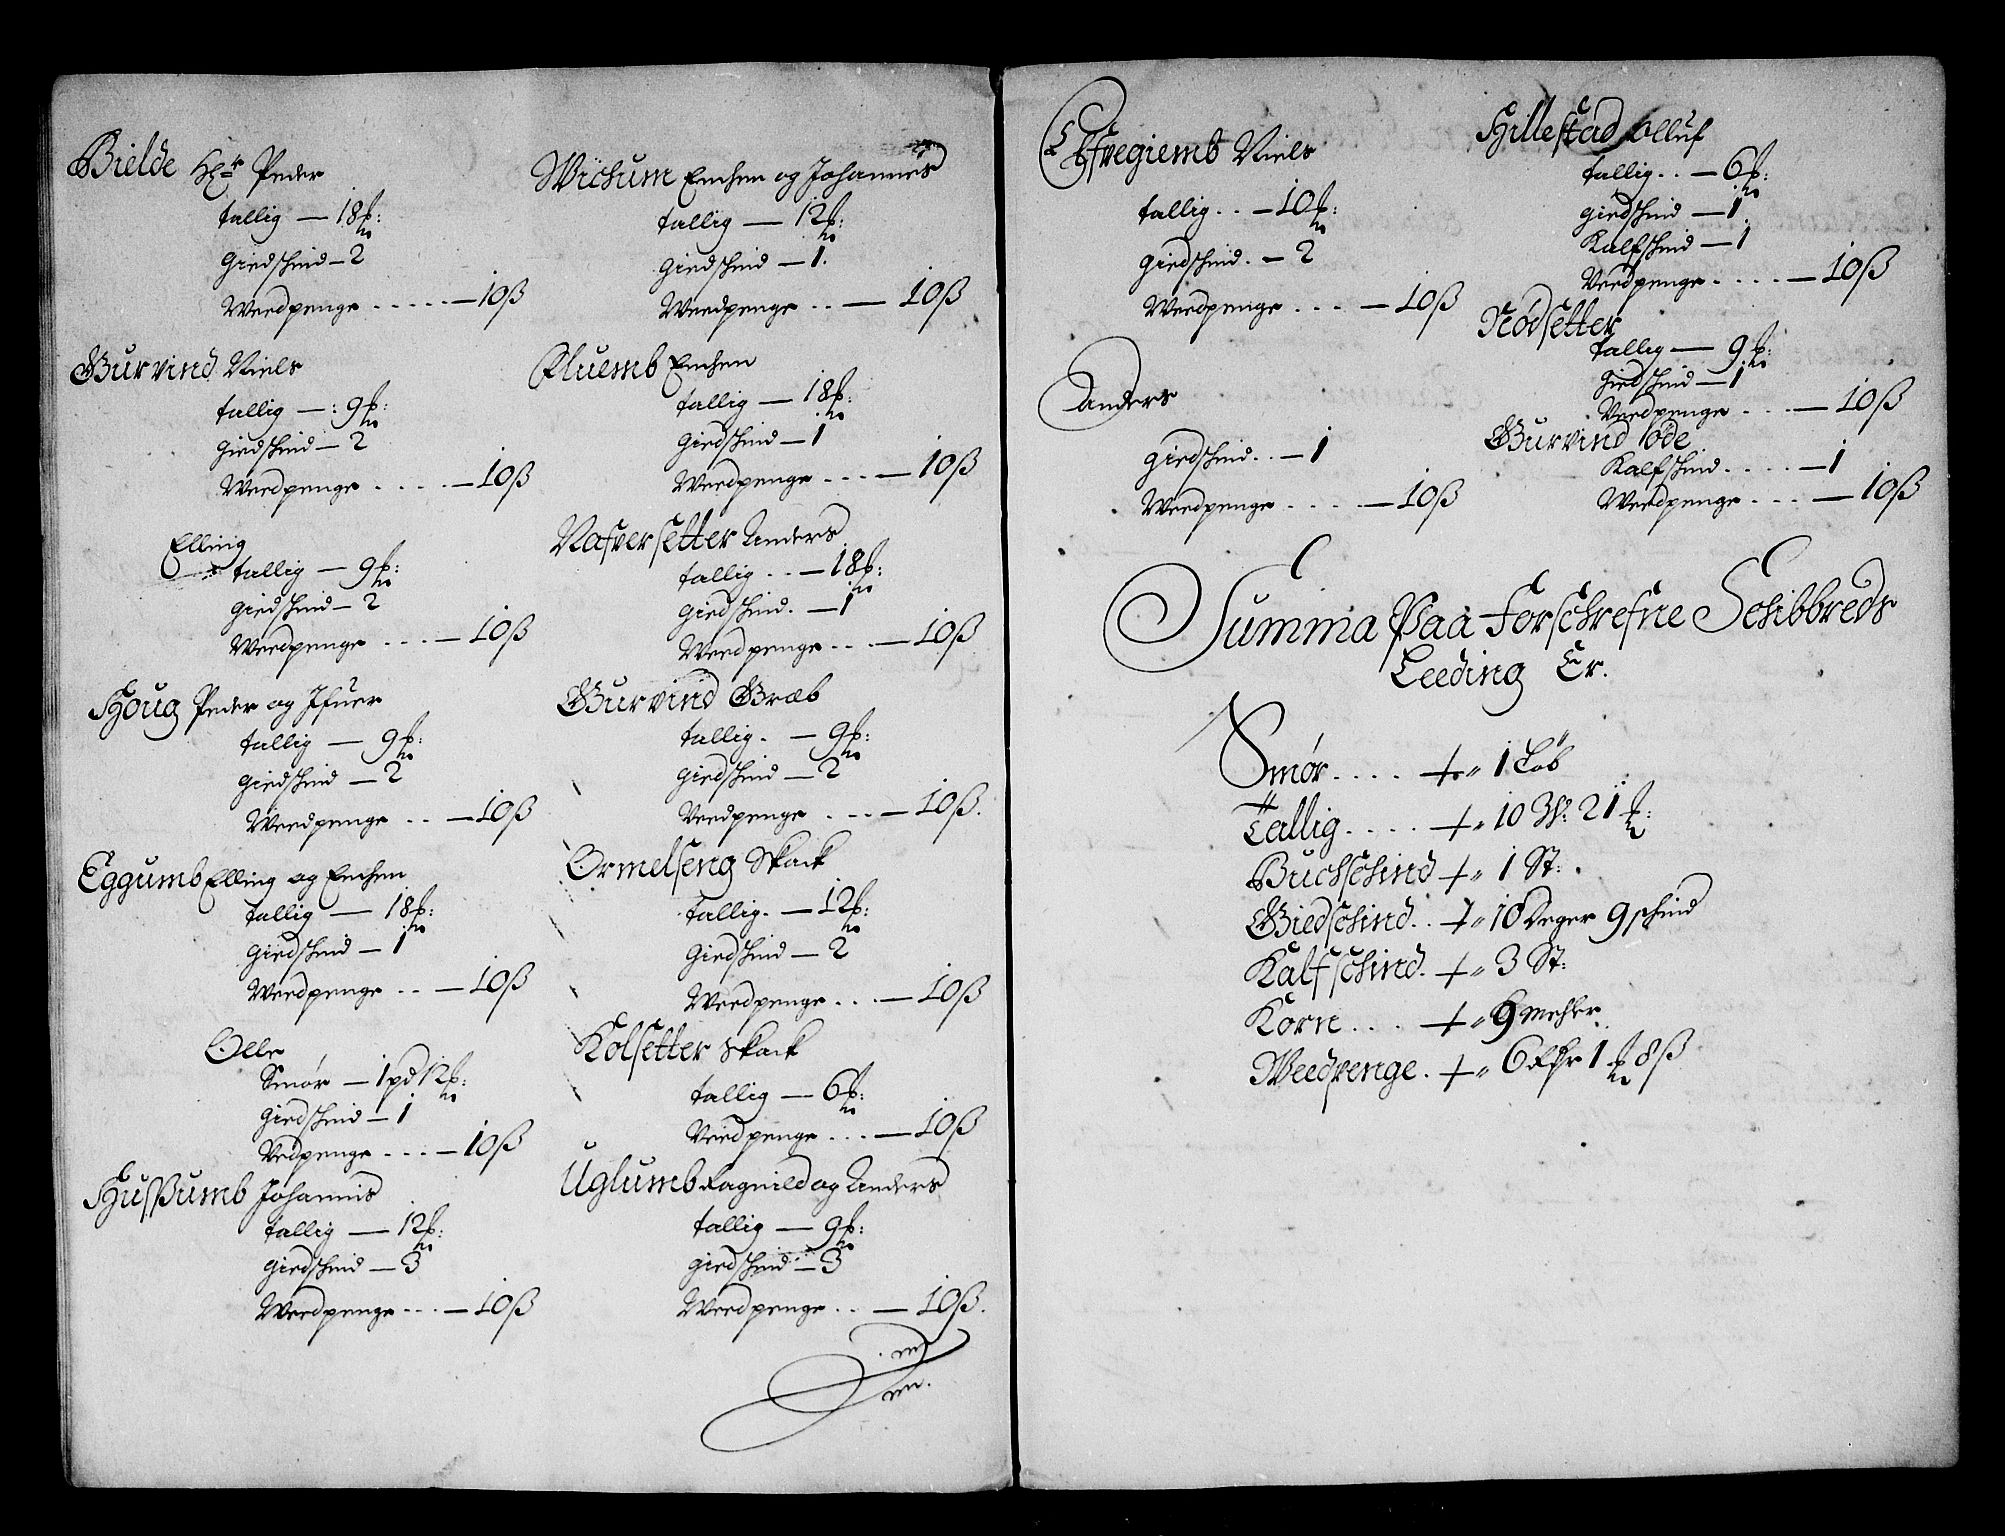 Bielde Hr: Peder
tallig — 18 ℔:
giedschind — 2
Weedpenge . . . . . — 10 ß
Gurvind Niels
tallig — : 9 ℔:
giedschind — 2
Weedpenge . . . . . — 10 ß
Elling
tallig — 9 ℔:
giedschind — 2
Weedpenge . . . — 10 ß
Houg Peder og Ifuer
tallig — 9 ℔:
giedschind — 2
Weedpenge . . — 10 ß
Eggumb Elling og Erichen
tallig — 18 ℔:
giedschind — 1
Weedpenge . . — 10 ß
Olle
Smør — 1 pd 12 ℔:
giedschind — 1
Vedpenge . . . — 10 ß
Hussumb Johannis
tallig — 12 ℔:
giedschind — 3
Weedpenge . . . — 10 ß
Wichum Erichen og Johannes
tallig — 12 ℔:
giedschind — 1.
Weedpenge . . — 10 ß
Kluemb Erichen
tallig — 18 ℔:
giedschind — 1
Weedpenge . . . — 10 ß
Nafversetter Anders
tallig . . — 18 ℔:
giedschind. — 1
Weedpenge . . . — 10 ß
Gurvind Græb
tallig. — 9 ℔:
giedschind — 2
Veedpenge . . . — 10 ß.
Ormelseng Skack
tallig. — 12 ℔:
giedschind — 2
Weedpenge . . . — 10 ß
Kolsetter Skack
tallig — 6 ℔:
Veedpenge . . . — 10 ß
Uglumb Ragnild og Anders
tallig — 9 ℔:
giedschind — 3
Weedpenge . . — 10 ß.
Niels
tallig . . — 10 ℔:
giedschind. — 2
Weedpenge . . . . — 10 ß
Anders
giedschind . . — 1
Weedpenge . . . . . — 10 ß
Hillestad Olluf
tallig . . — 6 ℔:
giedschind — 1
Kalfschind — 1
Veedpenge . . . . . — 10 ß
Nødsetter
tallig — 9 ℔:
giedschind — 1
Veedpenge . . . — 10 ß
Gurvind øde
Kalfschind . . . . . — 1
Weedpenge . . . . — 10 ß
Summa Paa Forschrefne Schibbreds
Leeding Er.
Smør . . . . 1 Løb
Tallig . . . . . 10 W: 21 ℔:
Buchschind 1 St: .
Giedschind . . 10 Deger 9 schind
Kalfschind . 3 St:
Korn . . . . 9 mehler
Weedpenge . 6 Rdr 1 ℔ 8 ß